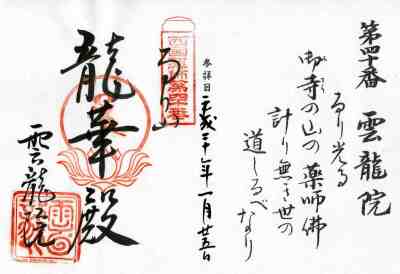 第四十番 雲龍院
るり光る
御寺の山の 薬師佛
計り無き世の
道しるべなり
参拝日 平成三十年一月廿五日
西国薬師第四十番
るり山
龍華殿
雲龍院